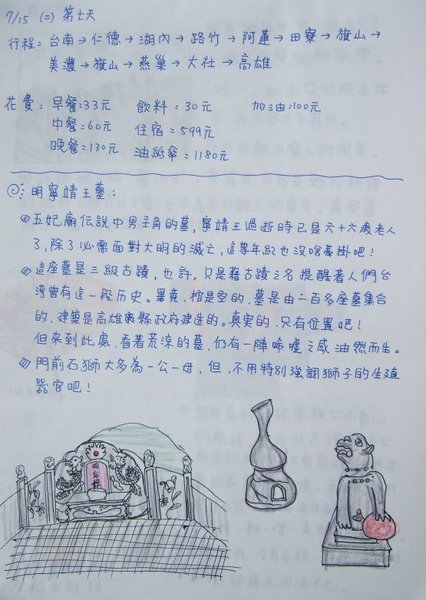 7/15 (二) 第七天
行程：台南→仁德→湖內→路竹→阿蓮→田寮→旗山→
美濃→旗山→燕巢→大社→高雄
花費：早餐：33元 飲料：30元 加油：100元
中餐：60元 住宿：599元
晚餐：130元 油紙傘：1180元
明寧靖王墓：
五妃廟伝說中男主角的墓，寧靖王過逝時已是六十六歲老人
了，除了必需面對大明的滅亡，這等年紀也沒啥牽掛吧！
這座墓是三級古蹟，也許，只是藉古蹟之名提醒著人們台
灣曾有這一段历史。畢竟，棺是空的，墓是由二百多座墓集合
的，建築是高雄縣政府建造的。真實的，只有位置吧！
但來到此處，看著荒涼的墓，仍有一陣唏噓之感油然而生。
門前石獅大多為一公一母，但，不用特別強調獅子的生殖
器官吧！